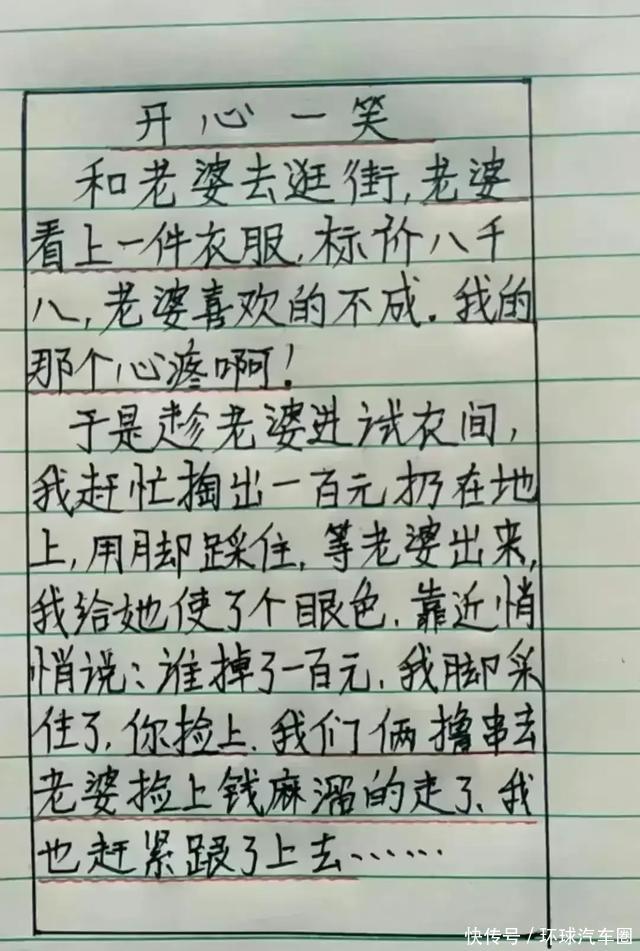 开心一笑
和老婆去逛街,老婆
看上一件衣服,标价八千
八,老婆喜欢的不成.我的
那个心疼啊!
于是趁老婆进试衣间,
我赶忙掏出一百元扔在地
上,用脚踩住,等老婆出来,
我给她使了个眼色.靠近悄
悄说:谁掉了一百元.我脚采
住了,你捡上.我们俩撸串去
老婆捡上钱麻溜的走了、我
也赶紧跟了上去……
快传号/环球汽车圈